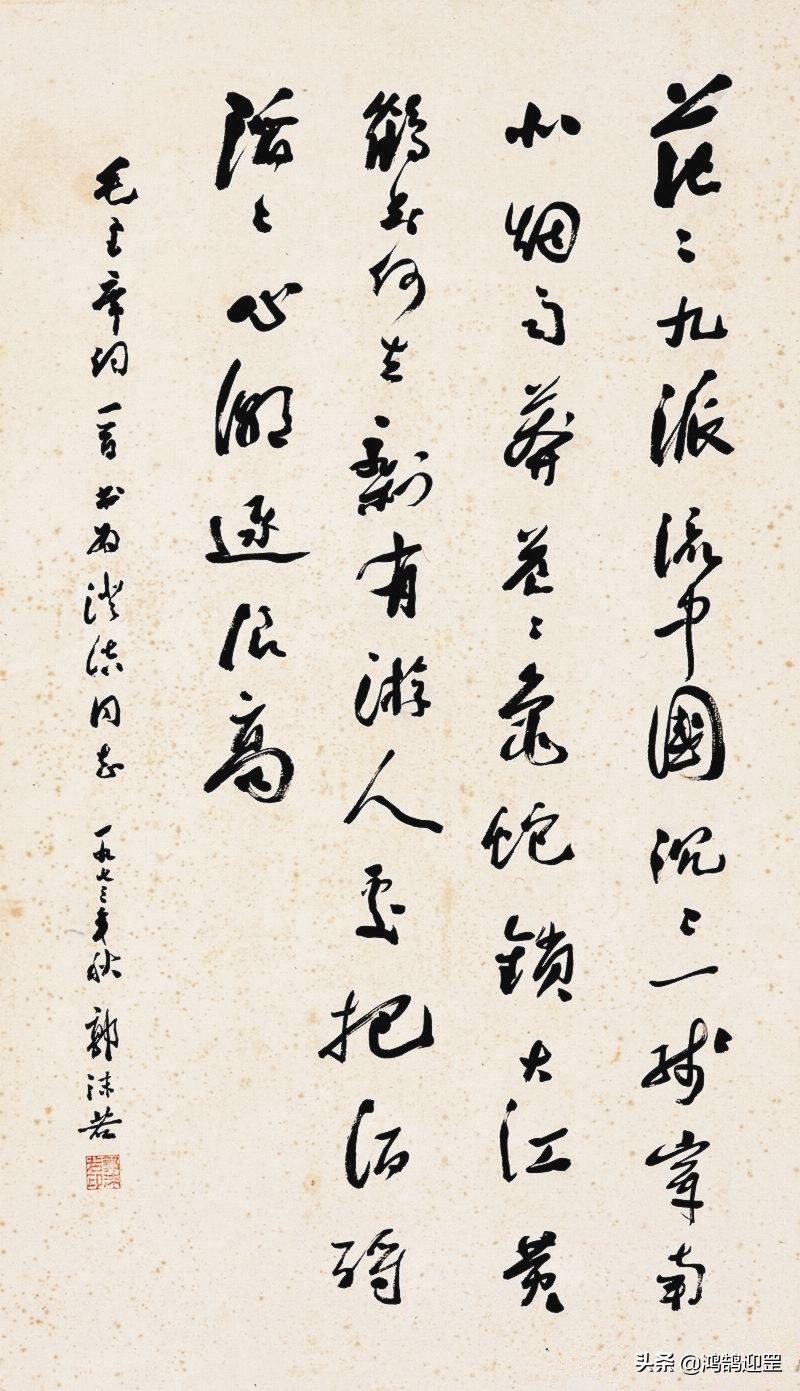 茫〻九派流中國沉〻一綫穿南
北烟雨莽蒼〻龜蛇鎖大江黄
鶴知何去剩有游人處把酒酹
滔〻心潮逐浪高
毛主席词一首书为同志 一九七三年秋 郭沫若
郭沫若印
头条 @鸿鹄迎罡